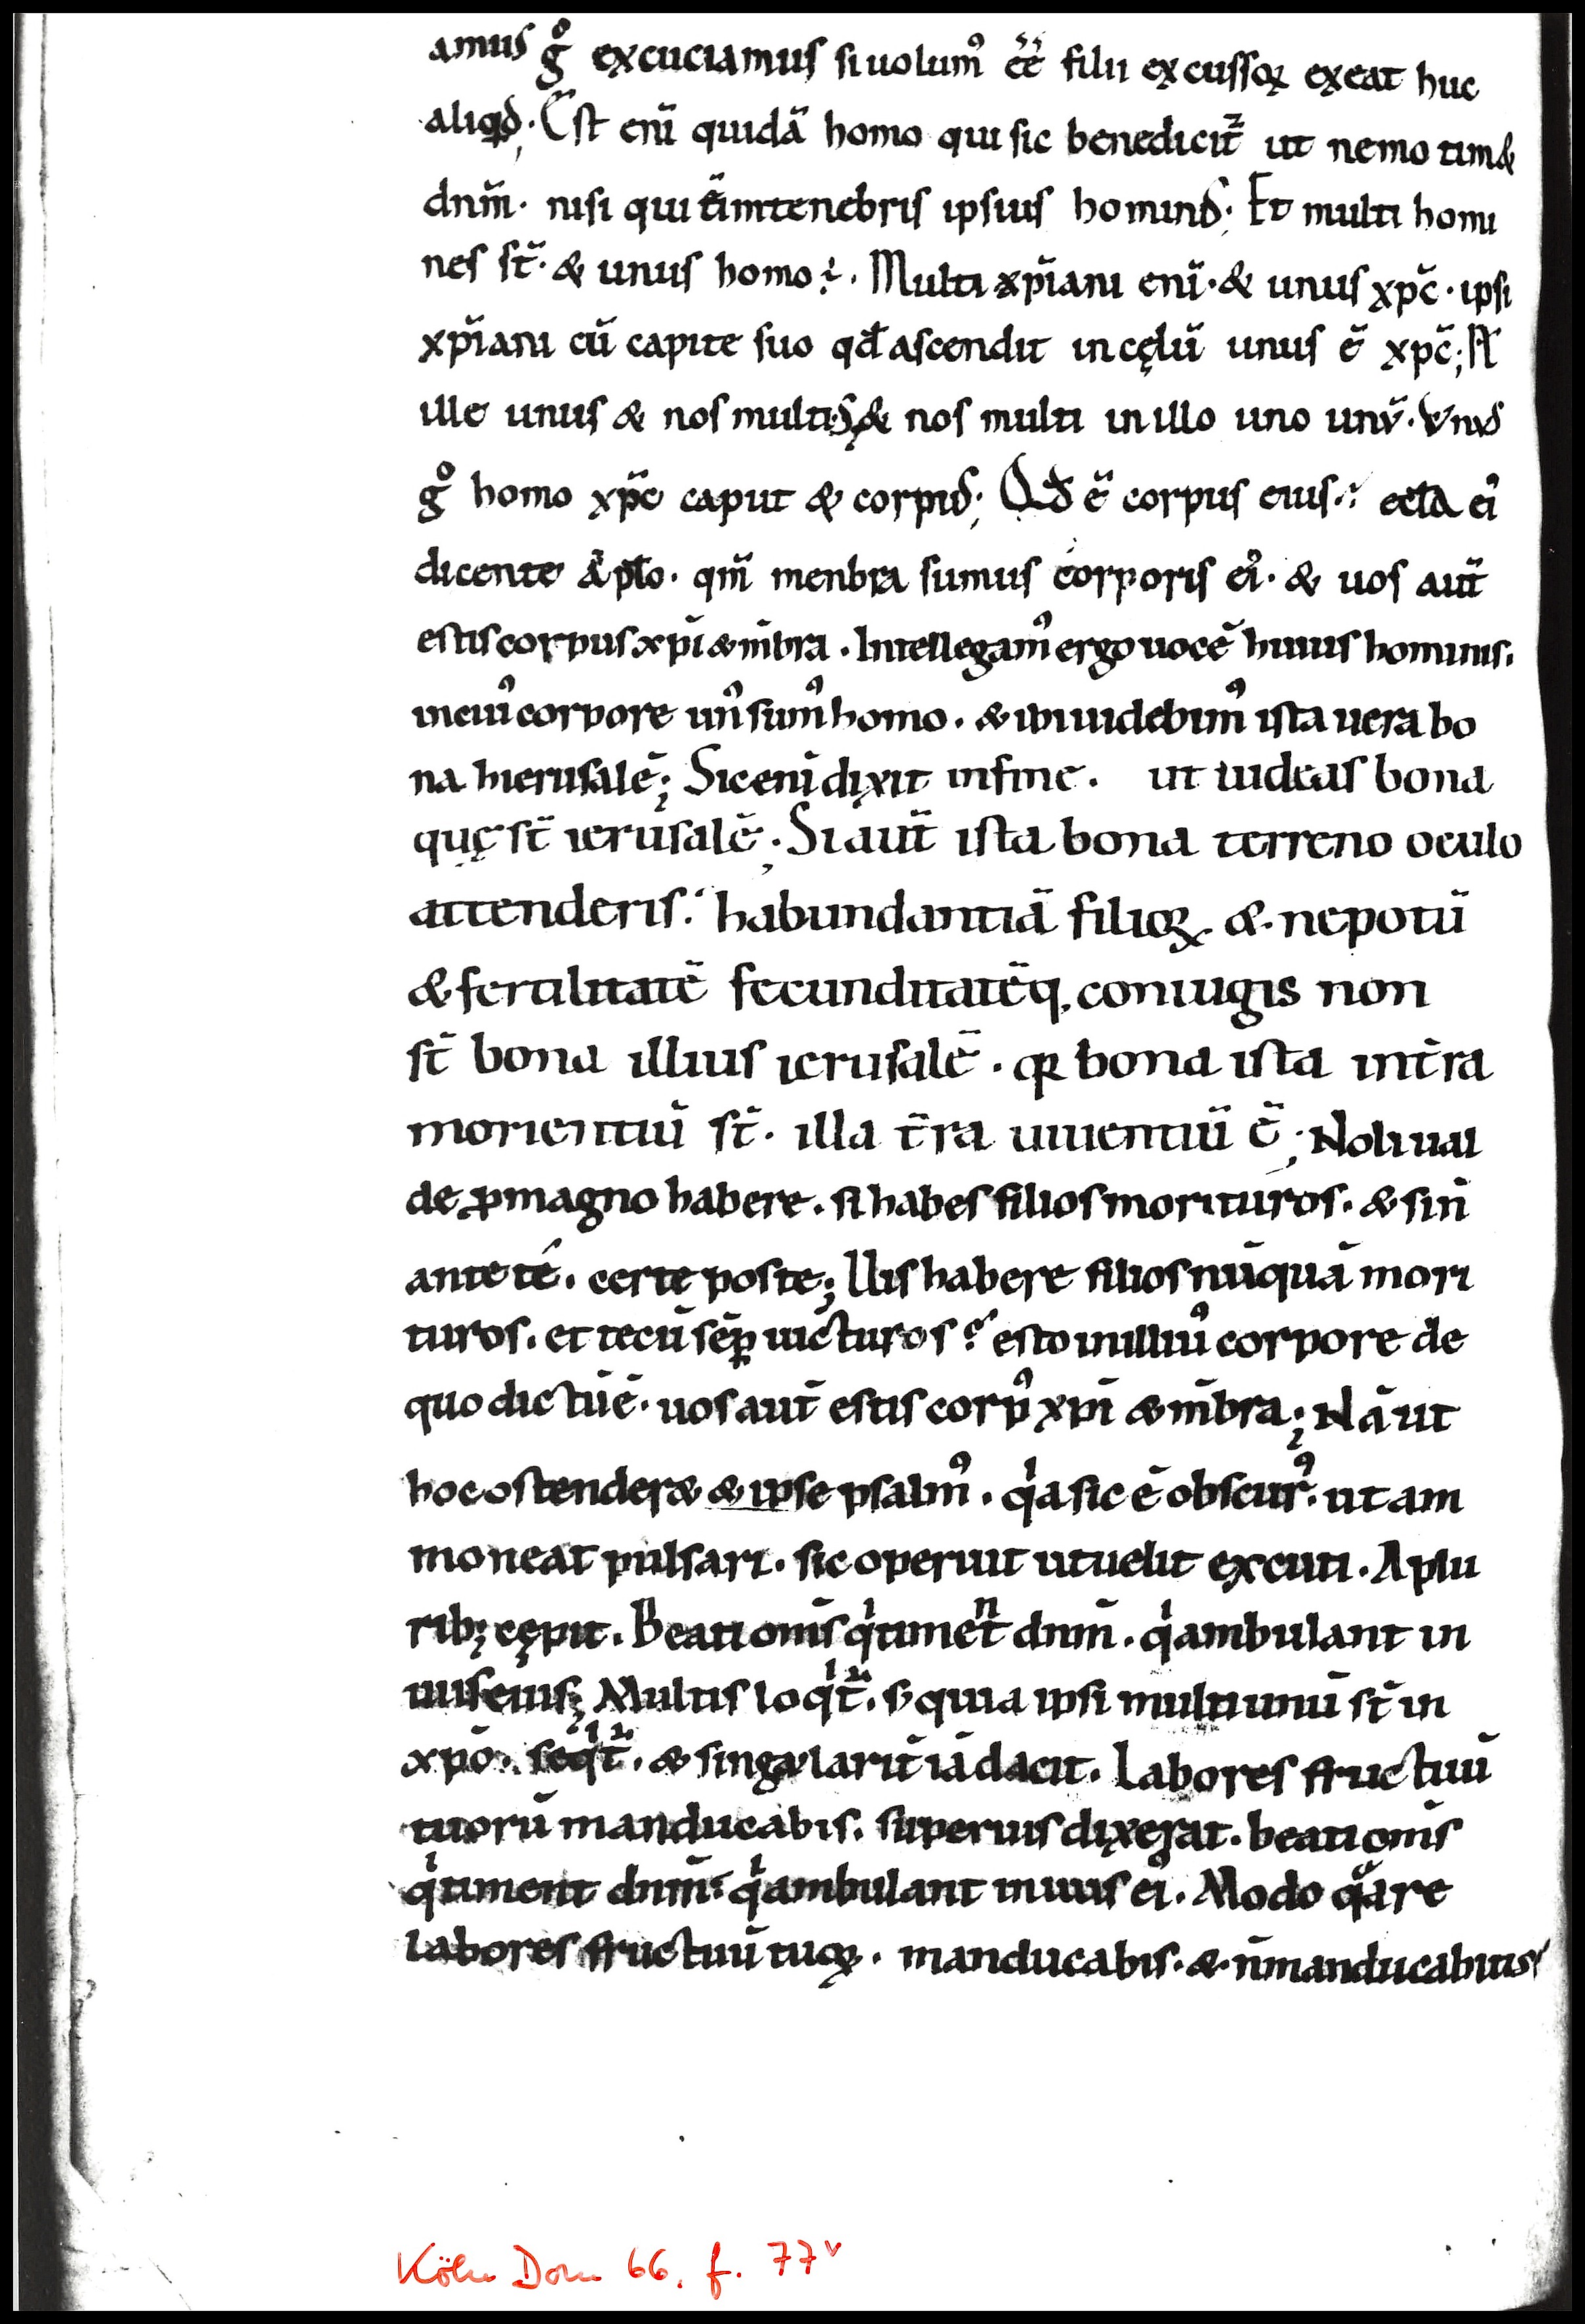 amus gͦ excuciamus si uolumꝰ ee̅ filii excussoꝝ exeat huc
aliqd̵; Est eni̅ quida̅ homo qui sic benedicit᷑ ut nemo tim&
dnm̅. nisi qui e̅ in tenebris ipsius hominis; Et multi homi
nes st̅. & unus homo ÷. Multi xp̅iani eni̅. & unus xpc̅. ipsi
xp̅iani cu̅ capite suo qđ ascendit in cęlu̅ unus e̅ xpc̅; N̅
ille unus & nos multi; S; & nos multi in illo uno unu̅. Vnus
gͦ homo xp̅c caput & corpus; Qđ e̅ corpus eius? eccła eiꝰ
dicente apło. qm̅ menbra sumus corporis eiꝰ. & uos aut̅
estis corpus xp̅i & m̅bra. Intellegamꝰ ergo uoce̅ huius hominis.
in cuiꝰ corpore unꝰ sumꝰ homo. & ibi uidebimꝰ ista uera bo
na hierusale̅; Sic eni̅ dixit in fine. ut uideas bona
quę st̅ ierusale̅; Si aut̅ ista bona terreno oculo
attenderis. habundantia̅ filioꝝ & nepotu̅
& fertilitate̅ fecunditate̅q. coniugis non
st̅ bona illius ierusale̅. qꝛ bona ista in t̅ra
morientiu̅ st̅. illa t̅ra uiuentiu̅ e̅; Noli ual
de ꝓ magno habere. si habes filios morituros. & si n̅
ante te. certe post te; Uis habere filios nu̅qua̅ mori
turos. et tecu̅ se̅ꝑ uicturos? esto in illiuꝰ corpore de
quo dictu̅ e̅. uos aut̅ estis corpꝰ xp̅i & m̅bra; Na̅ ut
hoc ostender& & ipse psalmꝰ. qͥa sic e̅ obscurꝰ. ut am
moneat pulsari. sic operuit ut uelit excuti. A plu
rib; cępit. Beati om̅s qͥ timent dnm̅. qͥ ambulant in
uiis eius; Multis loqͥt᷑. s; quia ipsi multi unu̅ st̅ in
xpo̅. seqͥt᷑. & singularit̅ ia̅ dicit. Labores fructuu̅
tuoru̅ manducabis. superius dixerat. beati om̅s
qͥ timent dnm̅. qͥ ambulant in uiis eiꝰ. Modo qͣare
labores fructuu̅ tuoꝝ. manducabis. & n̅ manducabitis?
Köln Dom 66. f. 77v